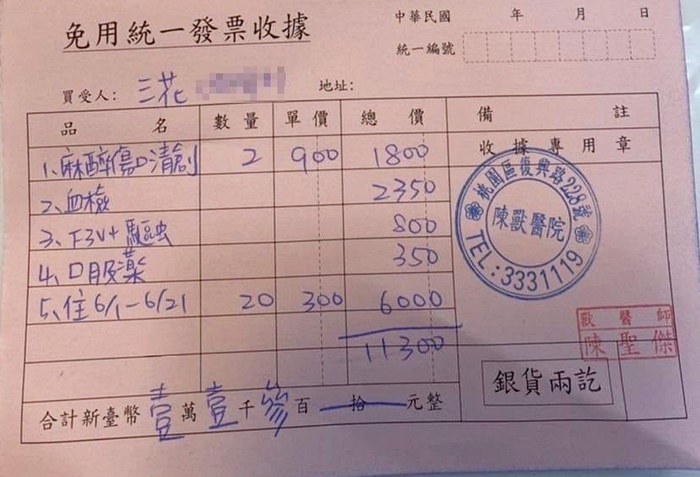 免用統一發票收據
中華民國 年 月 日
統一編號
買受人: 三花 地址:
品名 數量 單價 總價 備註
1、麻醉傷口清創 2 900 1800 收據專用章
2、血檢 2350
3、F3V+驅蟲 800
4、口服藥 350
5、住6/1-6/21 20 300 6000
11300
桃園區復興路228號
陳獸醫院
TEL:3331119
獸醫師
陳聖傑
銀貨兩訖
合計新臺幣壹萬壹千參百拾元整